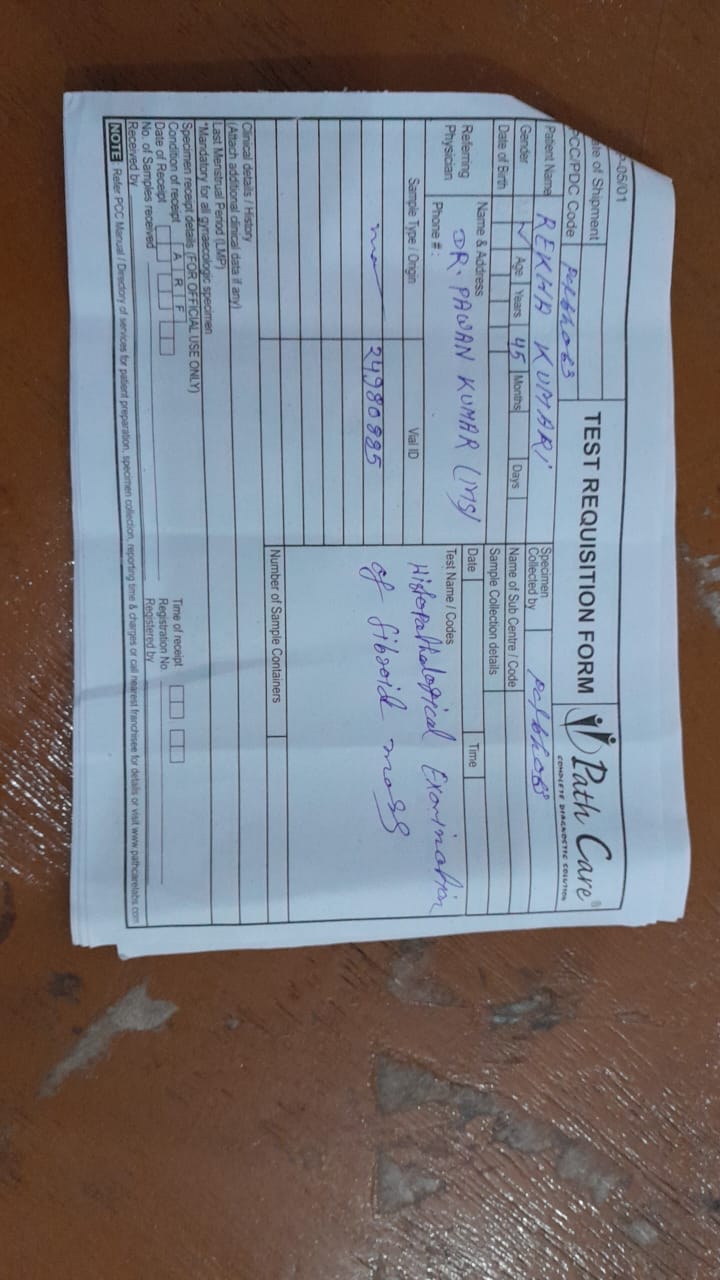 P-05/01
ate of Shipment
TEST REQUISITION FORM
Path Care
COMPLETE DIAGNOSTIC SOLUTION
PCC/PDC Code
Patient Name REKHA KUMARI
Specimen
Collected by
Gender Age Years 45 Months Days
Name of Sub Centre / Code
Date of Birth
Sample Collection details
Referring
Physician
Name & Address
DR. PAWAN KUMAR (MS)
Phone #:
Date Time
Sample Type / Origin Vial ID
Test Name / Codes
Histopathological Examination
of fibroid mass
24980985
Number of Sample Containers
Clinical details / History
(Attach additional clinical data if any)
Last Menstrual Period (LMP)
*Mandatory for all gynaecologic specimen
Specimen receipt details (FOR OFFICIAL USE ONLY)
Condition of receipt A R F
Time of receipt
Date of Receipt
Registration No
No. of Samples received
Registered by
Received by
NOTE Refer PCC Manual / Directory of services for patient preparation, specimen collection, reporting time & charges or call nearest franchisee for details or visit www.pathcarelabs.com